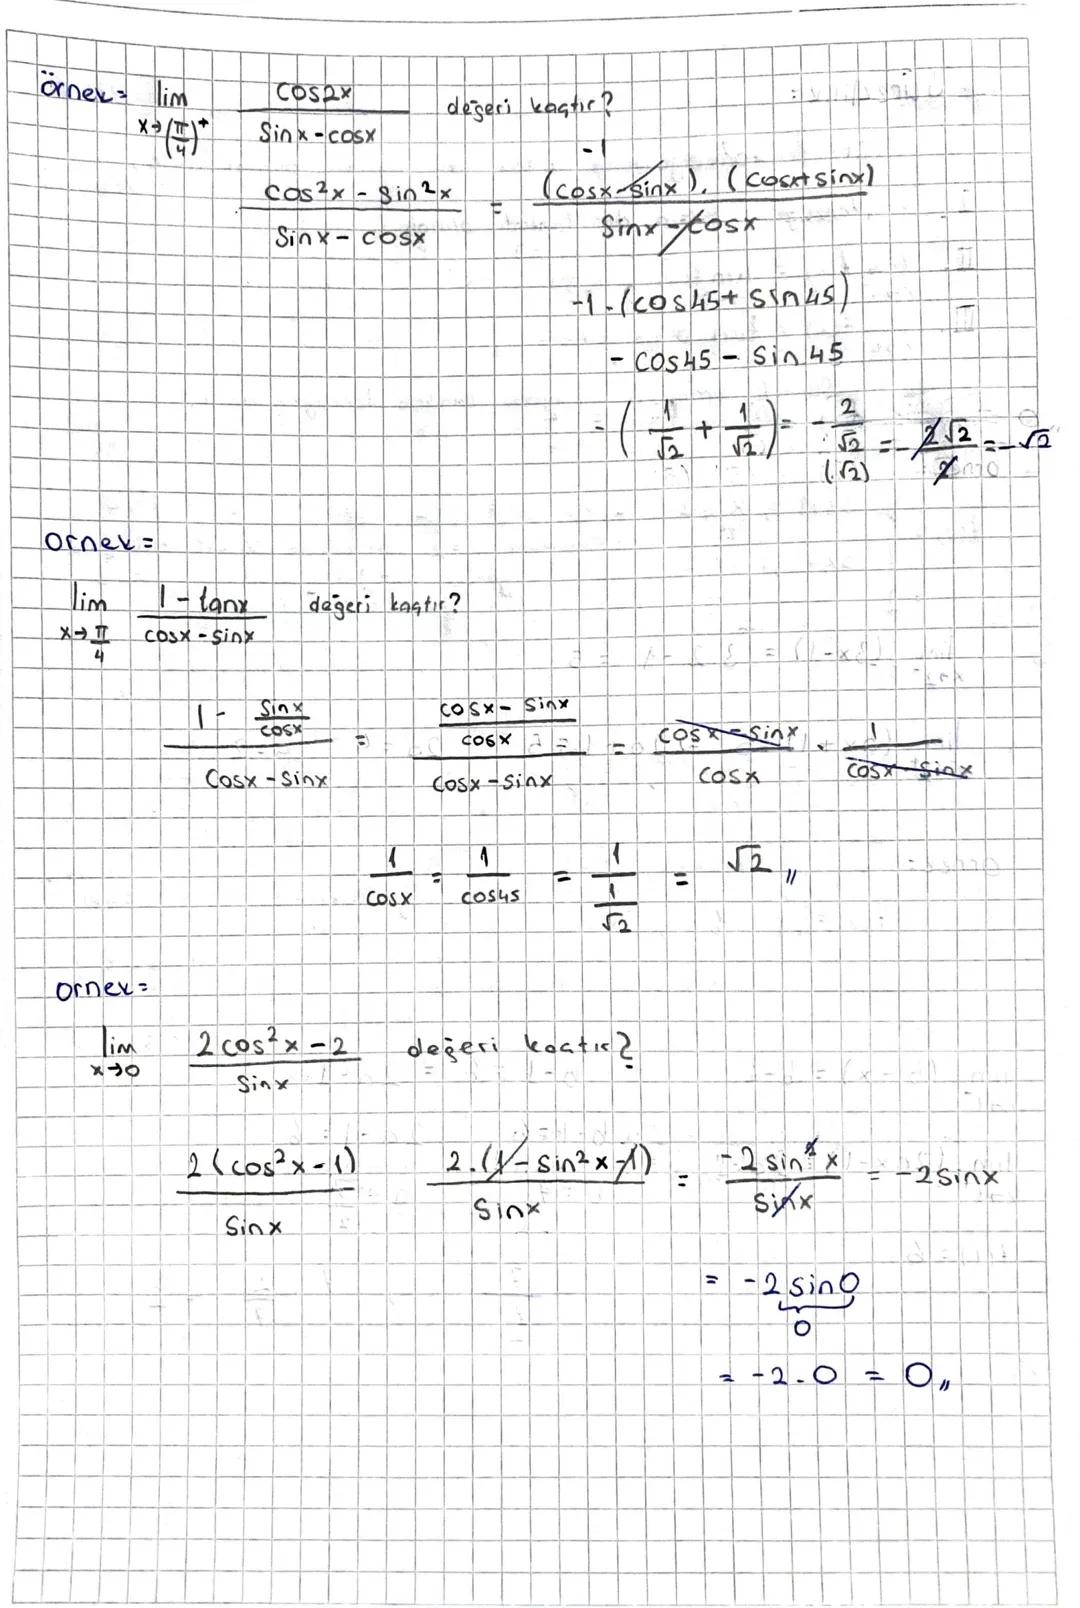 örnek= lim x→(π/4)⁺ cos2x / sinx-cosx değeri kaçtır?
cos²x - sin²x / sinx - cosx = -1 (cosx-sinx).(cosx+sinx) / sinx-cosx
-1.(cos45+sin45)
- cos45 - sin45
-(1/√2 + 1/√2) = -2/√2 (.√2) = -2√2/2 = -√2
ornek=
lim x→π/4 1-tanx / cosx-sinx değeri kaçtır?
1 - sinx/cosx / cosx-sinx = cosx-sinx/cosx / cosx-sinx = cosx-sinx / cosx . 1 / cosx-sinx
1/cosx = 1/cos45 = 1/(1/√2) = √2 //
ornek=
lim x→0 2cos²x-2 / sinx değeri kaçtır?
2(cos²x-1) / sinx 2.(1-sin²x-1) / sinx = -2sin²x / sinx = -2sinx
= -2 sin0
0
= -2.0 = 0 //